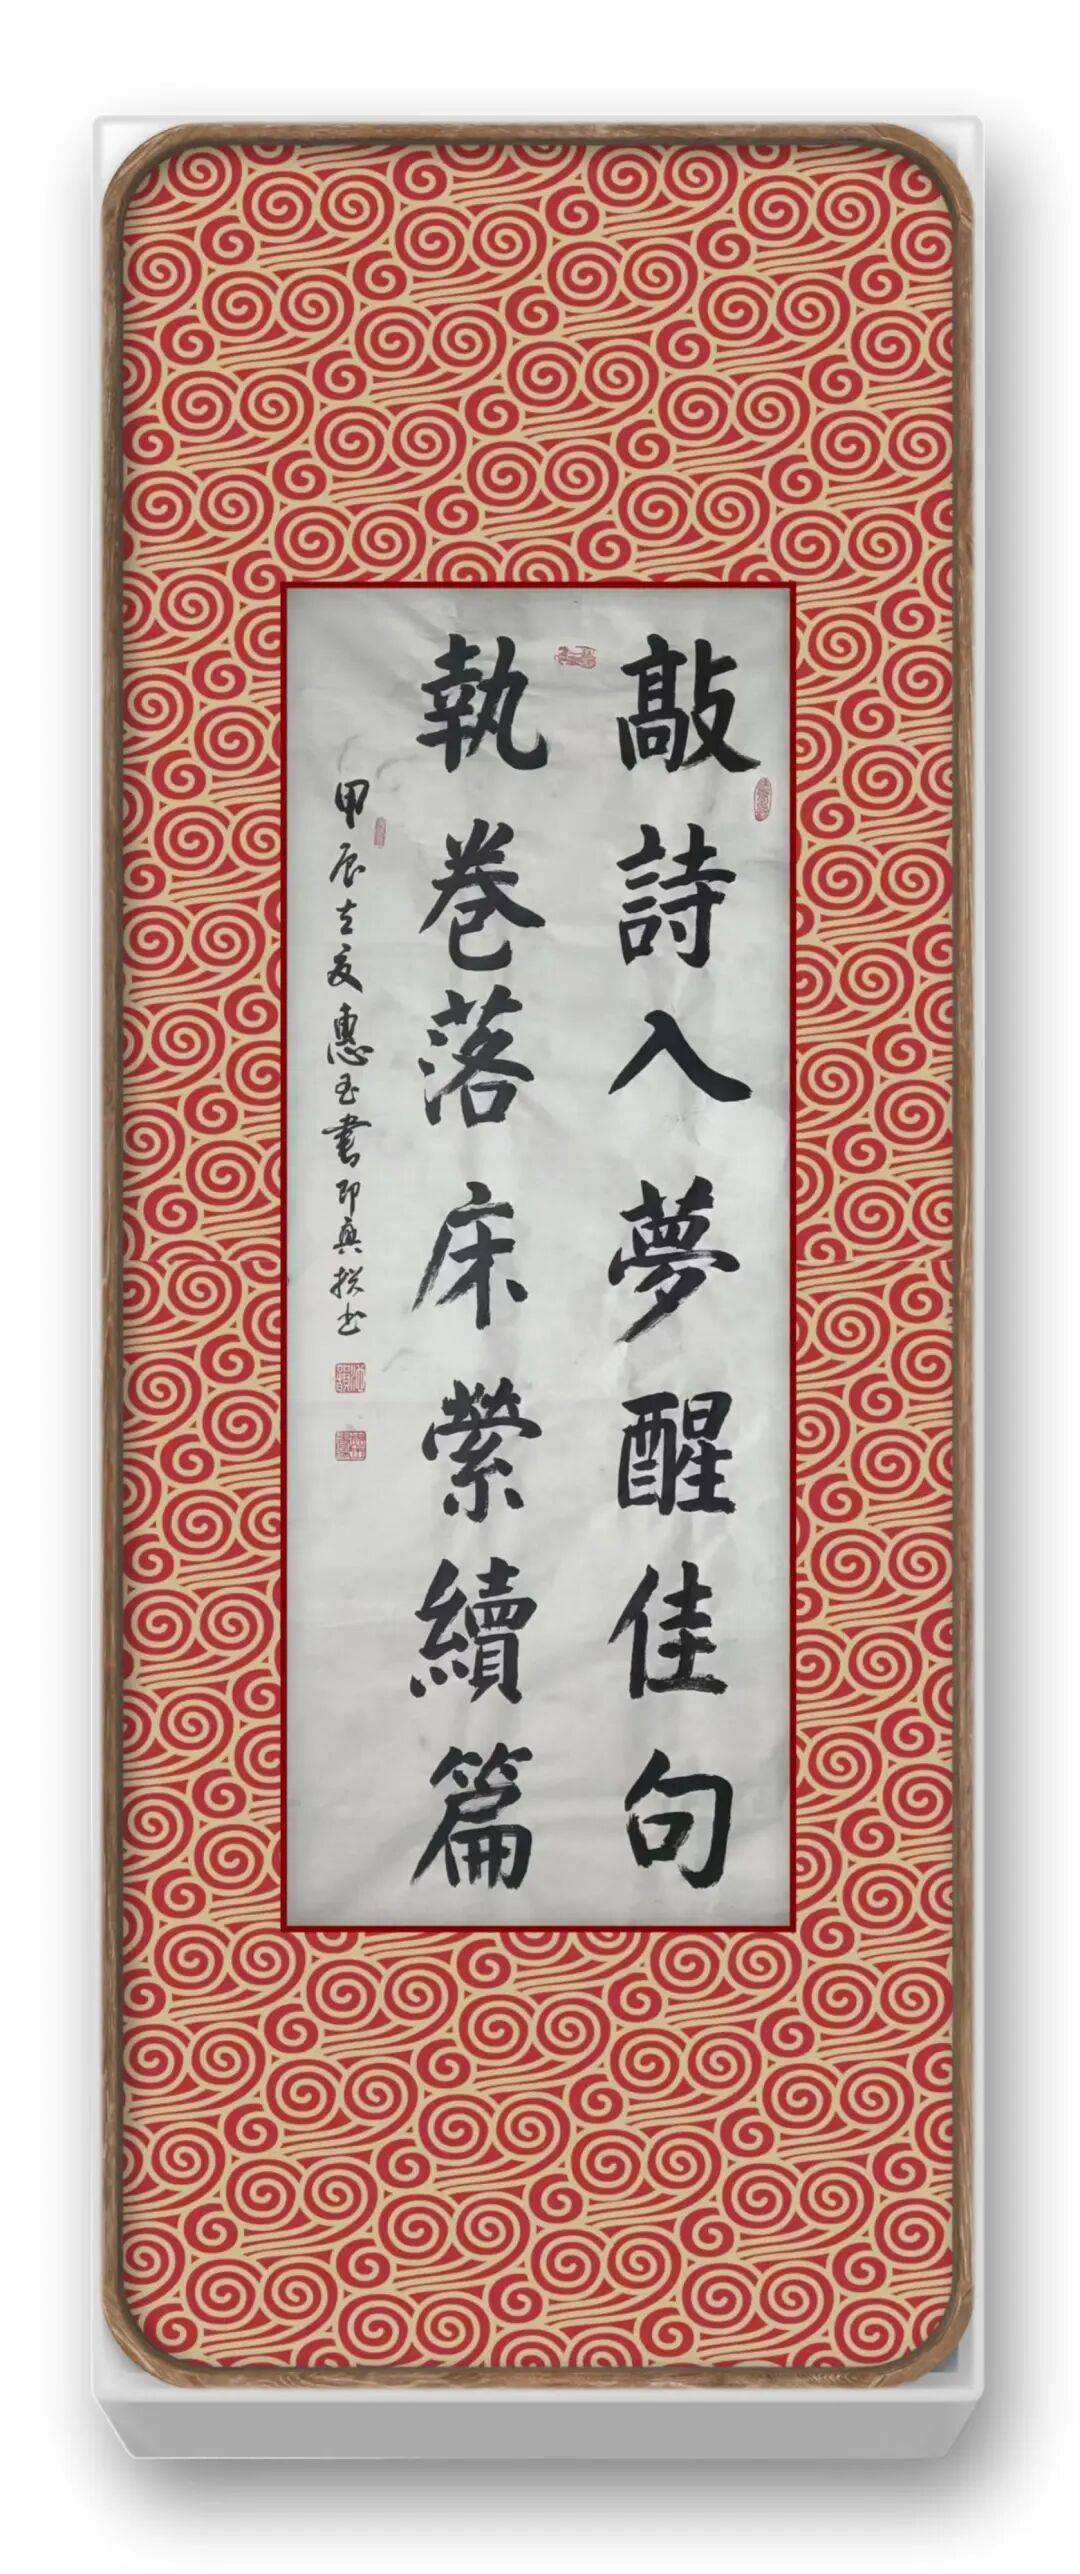 敲詩入夢醒佳句
執卷落床縈續篇
甲辰立夏惠玉書即興拙書